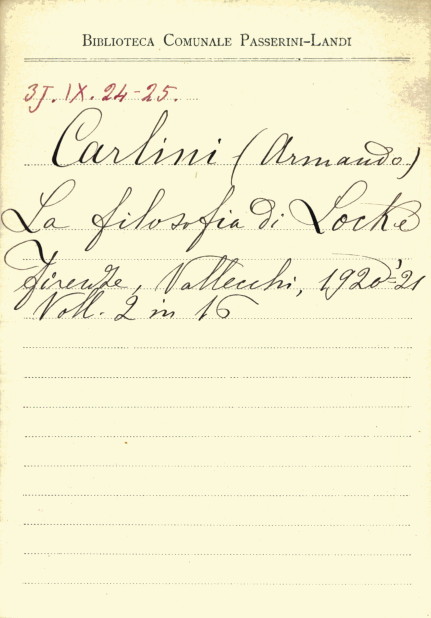 BIBLIOTECA COMUNALE PASSERINI-LANDI
3J. IX. 24-25.
Carlini (Armando)
La filosofia di Locke
Firenze, Vallecchi, 1920-'21
Voll. 2 in 16